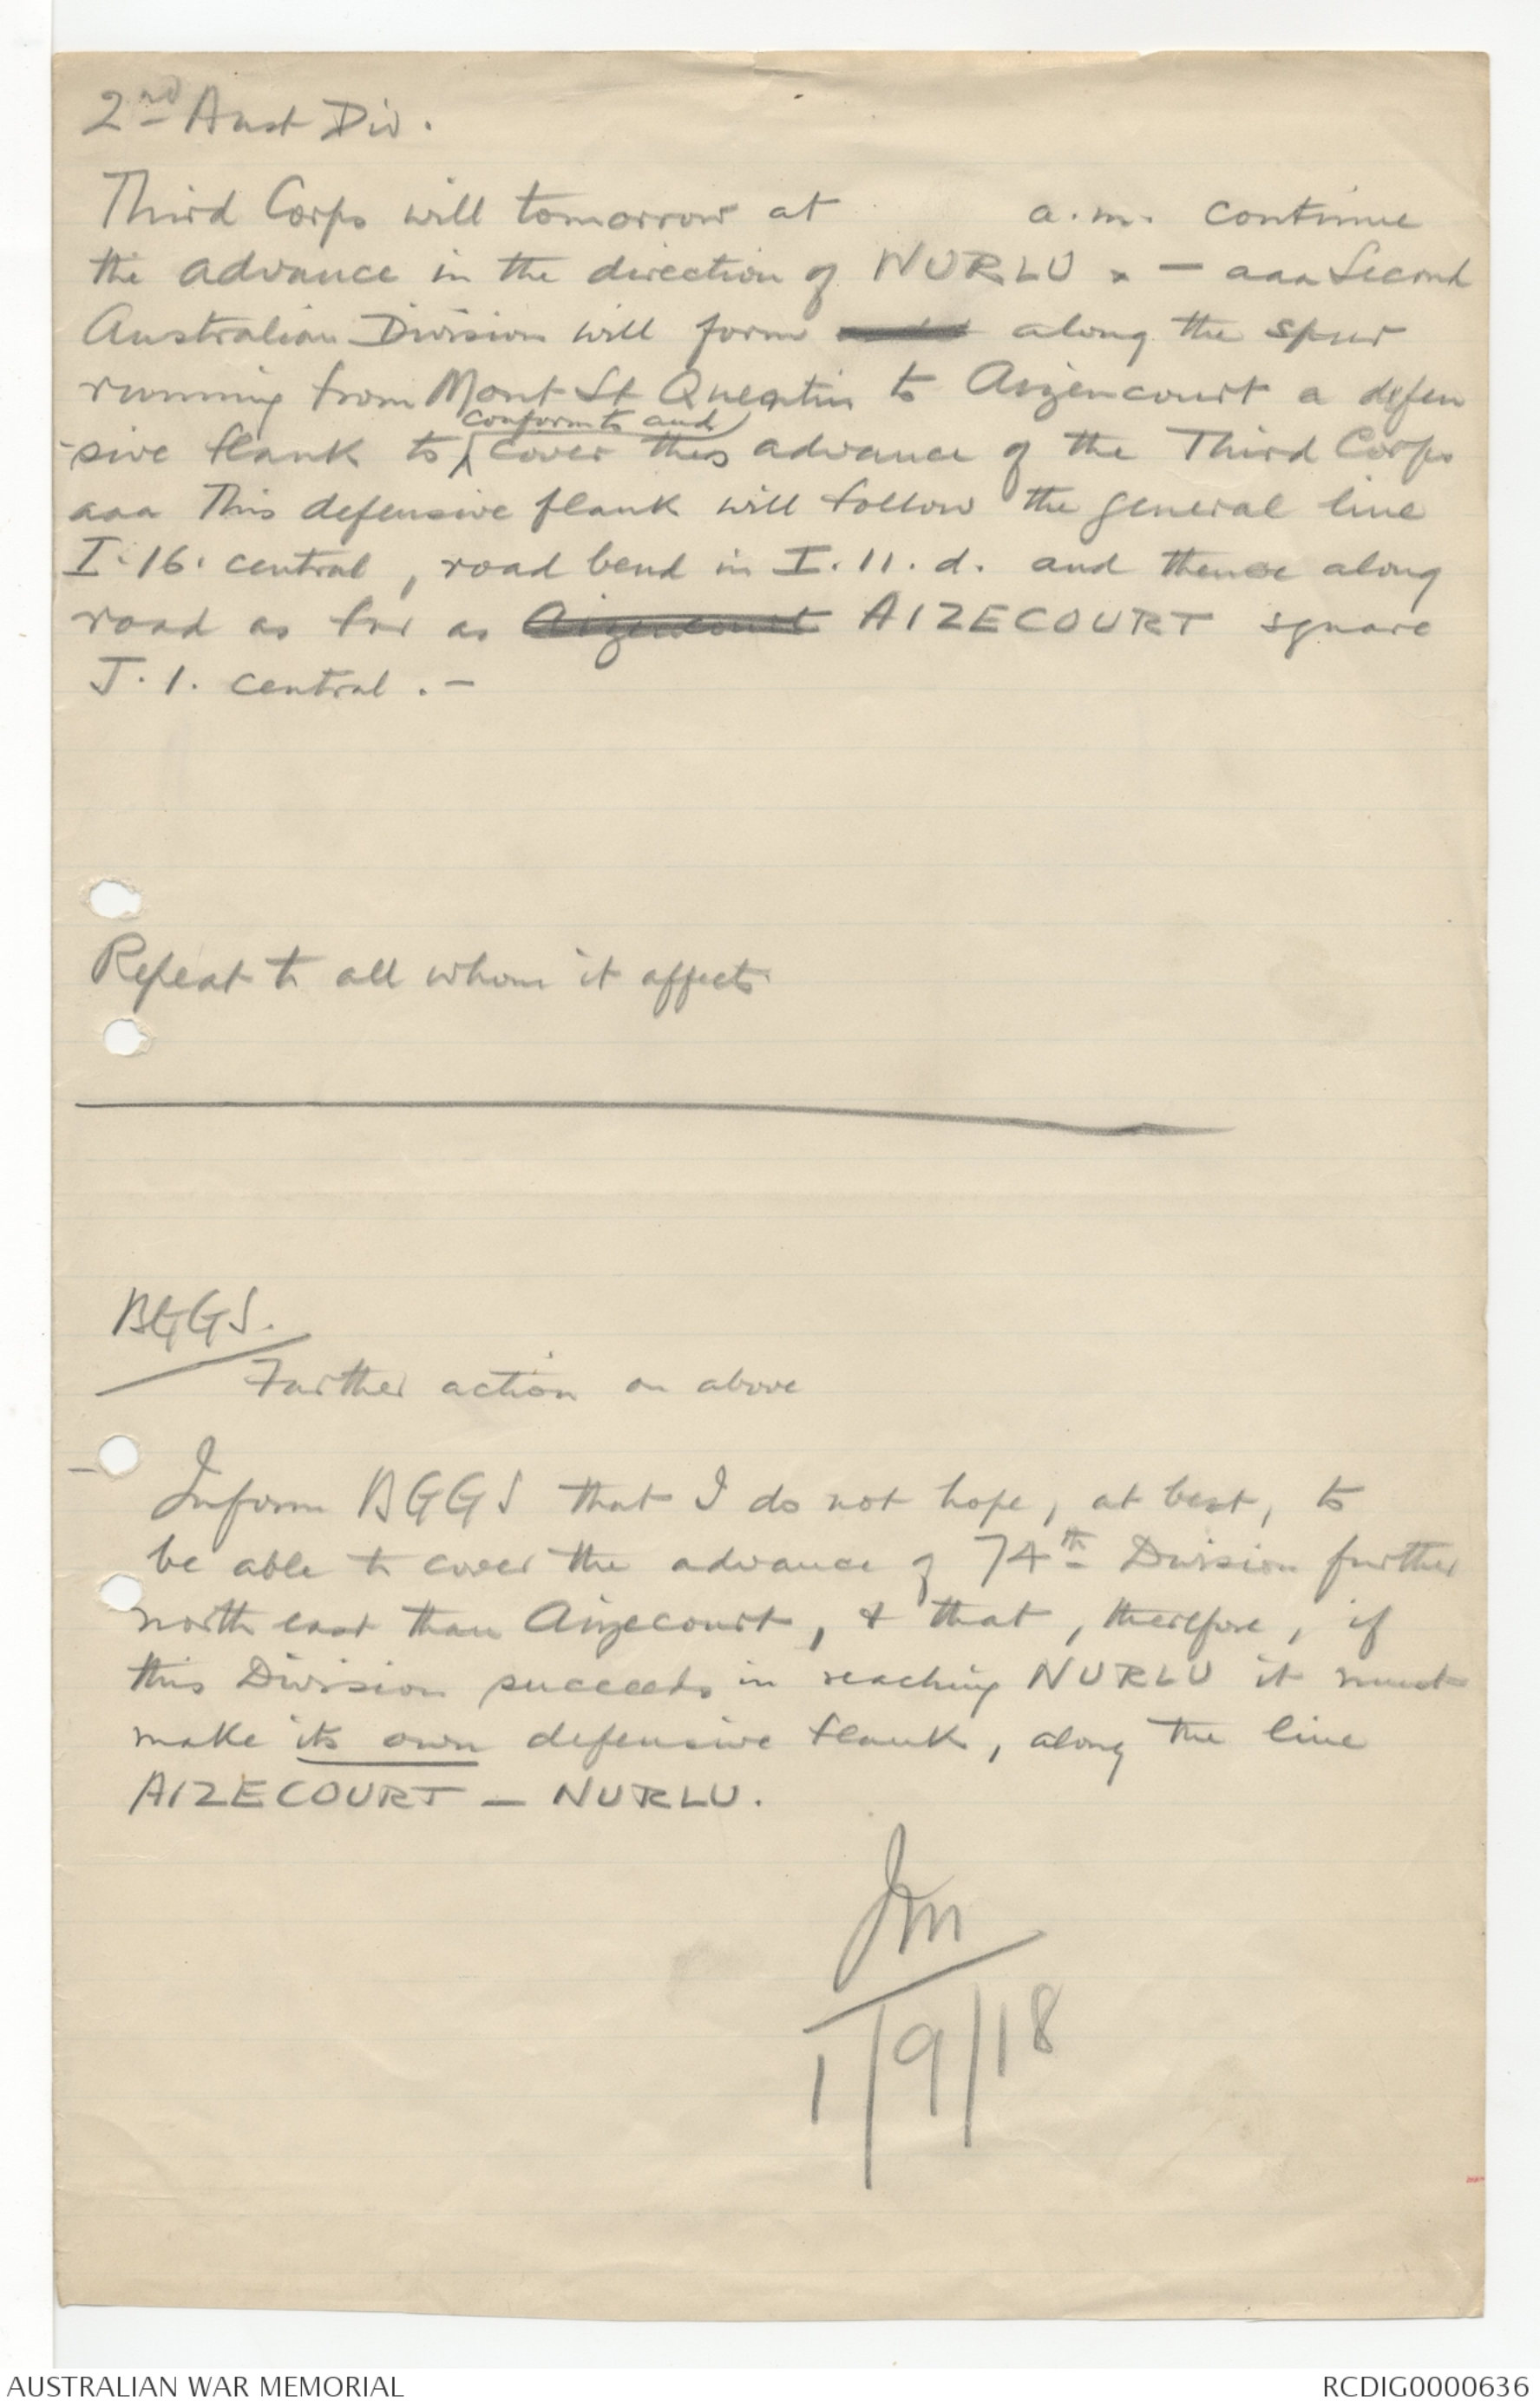 2nd Aust Div.
Third Corps will tomorrow at a.m. continue
the advance in the direction of NURLU x - aaa Second
Australian Division will form along the spur
running from Mont St Quentin to Aizencourt a defen
-sive flank to conform to and cover this advance of the Third Corps
aaa This defensive flank will follow the general line
I.16. central, road bend in I.11.d. and thence along
road as far as Aizencourt AIZECOURT square
J.1. central. -
Repeat to all whom it affects
BGGS.
Further action on above
Inform BGGS that I do not hope, at best, to
be able to cover the advance of 74th Division further
north east than Aizecourt, & that, therefore, if
this Division succeeds in reaching NURLU it must
make its own defensive flank, along the line
AIZECOURT - NURLU.
JM
1/9/18
AUSTRALIAN WAR MEMORIAL
RCDIG0000636